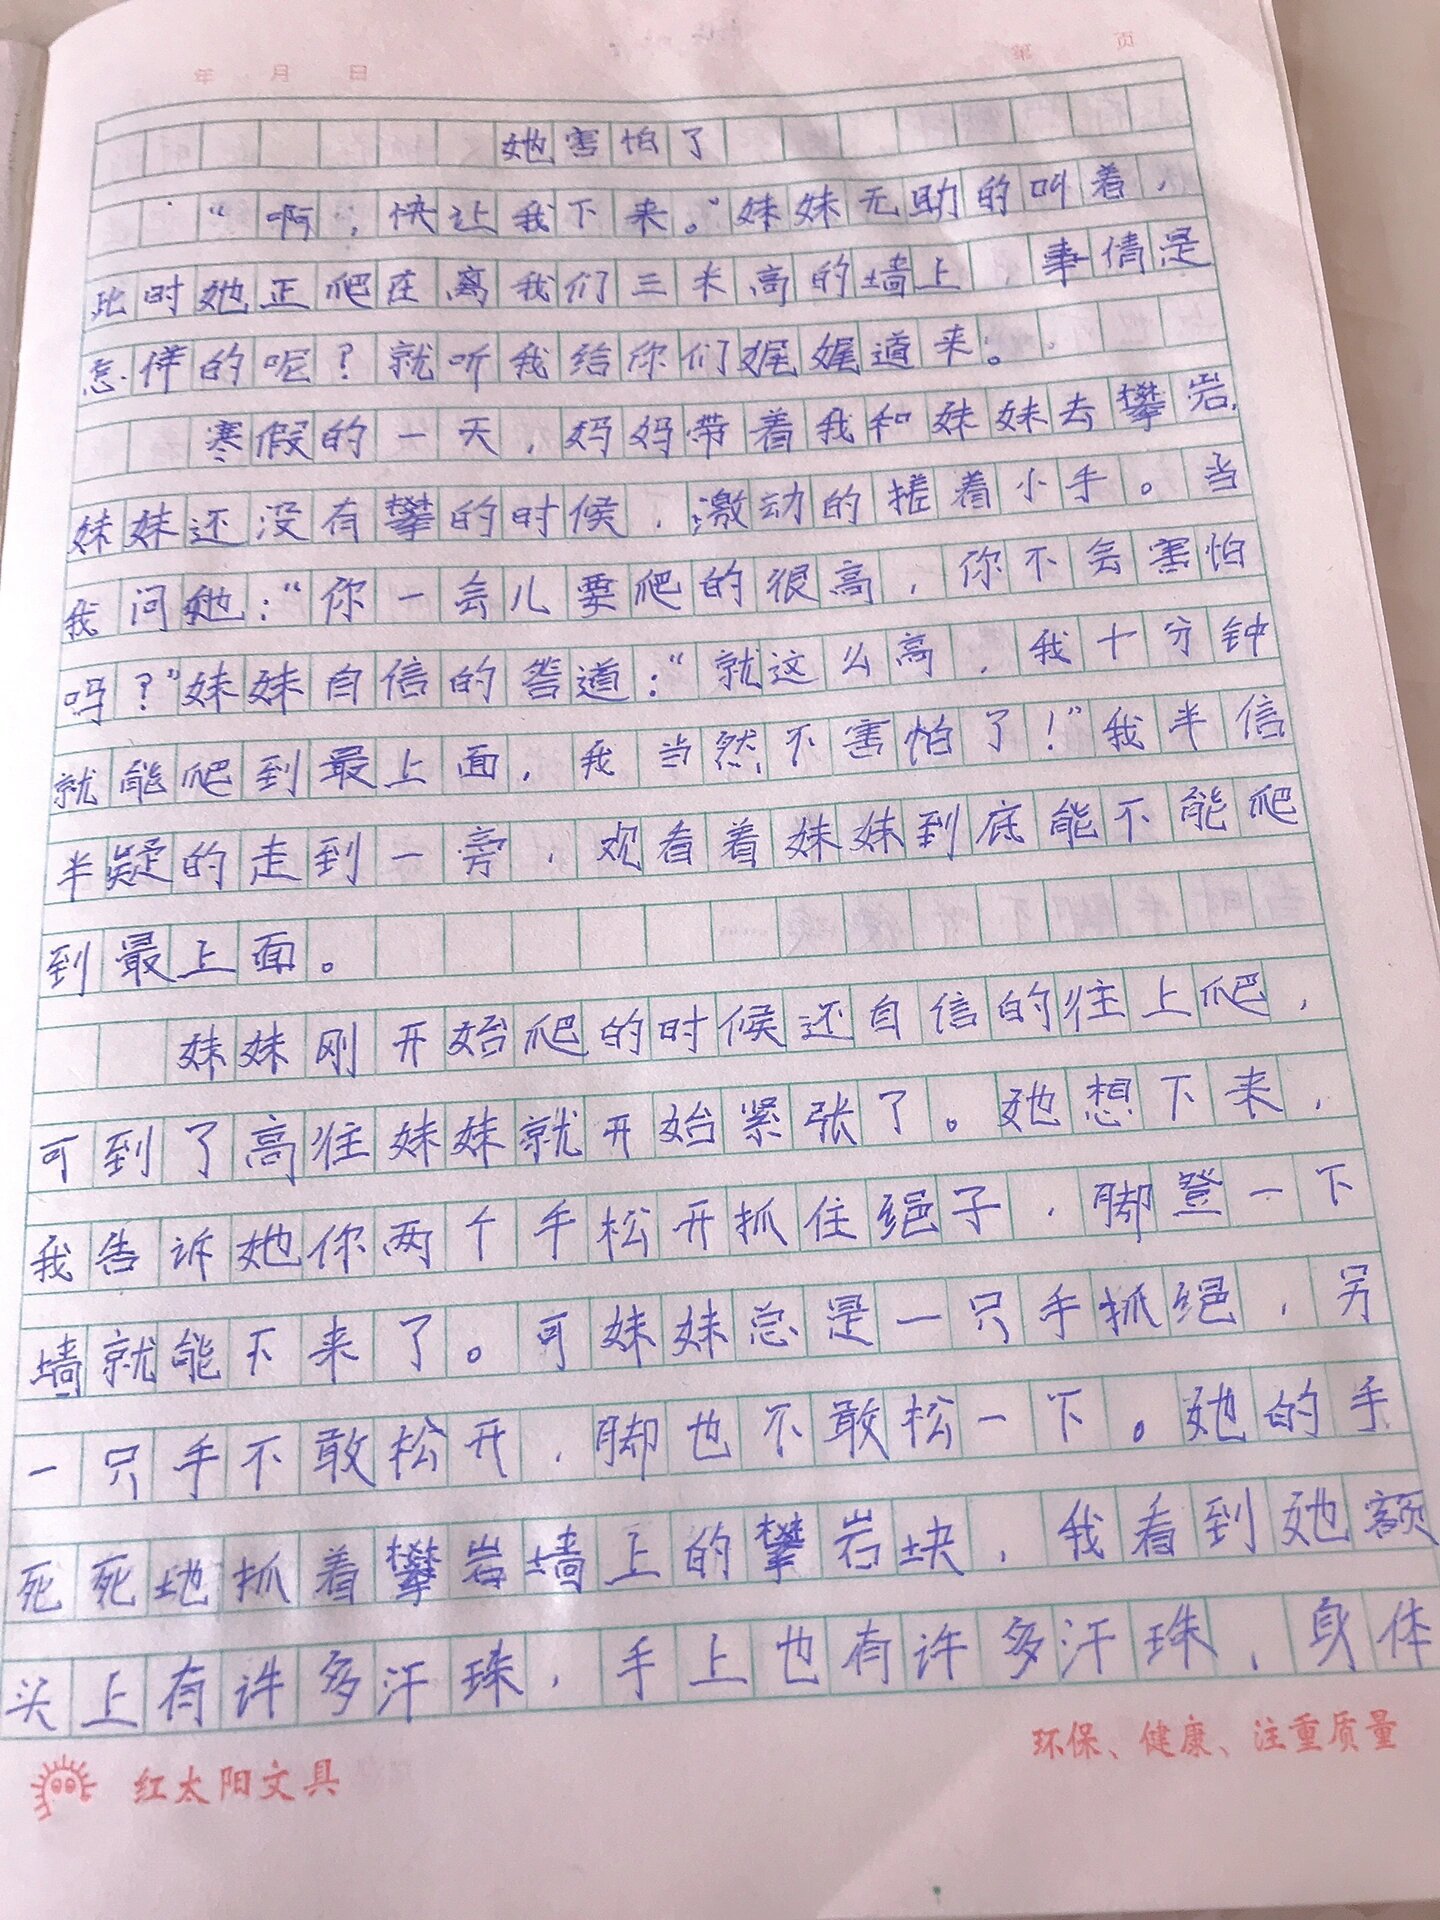 年 月 日
第 页
她害怕了
“啊，快让我下来。”妹妹无助的叫着，
此时她正爬在离我们三米高的墙上，事情是
怎样的呢？就听我给你们娓娓道来。
寒假的一天，妈妈带着我和妹妹去攀岩，
妹妹还没有攀的时候，激动的搓着小手。当
我问她：“你一会儿要爬的很高，你不会害怕
吗？”妹妹自信的答道：“就这么高，我十分钟
就能爬到最上面，我当然不害怕了！”我半信
半疑的走到一旁，观看着妹妹到底能不能爬
到最上面。
妹妹刚开始爬的时候还自信的往上爬，
可到了高往妹妹就开始紧张了。她想下来，
我告诉她你两个手松开抓住绳子，脚登一下
墙就能下来了。可妹妹总是一只手抓绳，另
一只手不敢松开，脚也不敢松一下。她的手
死死地抓着攀岩墙上的攀岩块，我看到她额
头上有许多汗珠，手上也有许多汗珠，身体
红太阳文具
环保、健康、注重质量